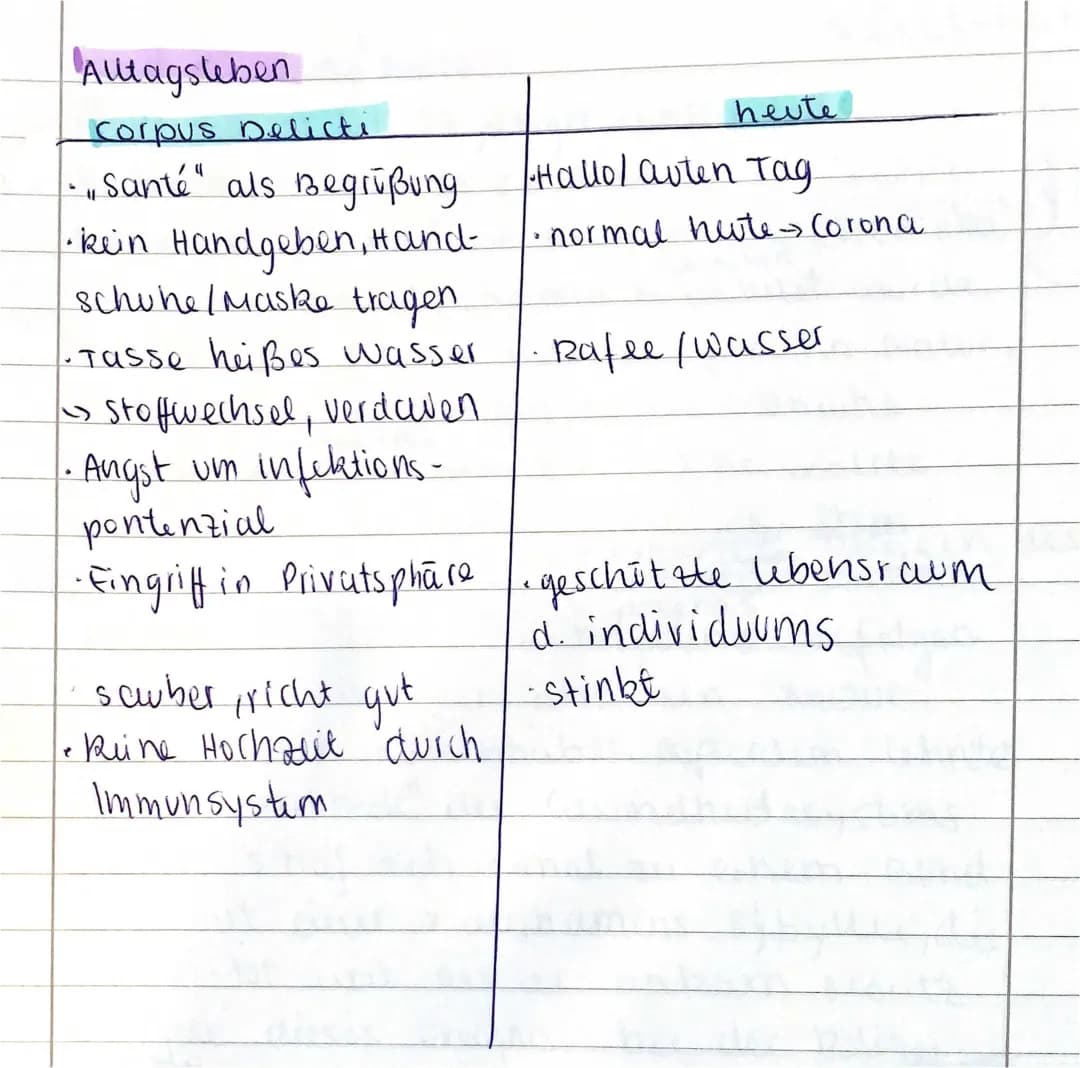 Alltagsleben
Corpus Delicti
heute
· „Santé" als Begrüßung
· Hallo/Guten Tag
· kein Handgeben, Hand-
· normal heute → Corona
schuhe/Maske tragen
· Tasse heißes Wasser
· Kafee/Wasser
↳ Stoffwechsel, verdauen
· Angst um infektions-
pontenzial
· Eingriff in Privatsphäre
· geschützte Lebensraum
d. individuums
· sauber, richt gut
· stinkt
· keine Hochzeit durch
Immunsystem